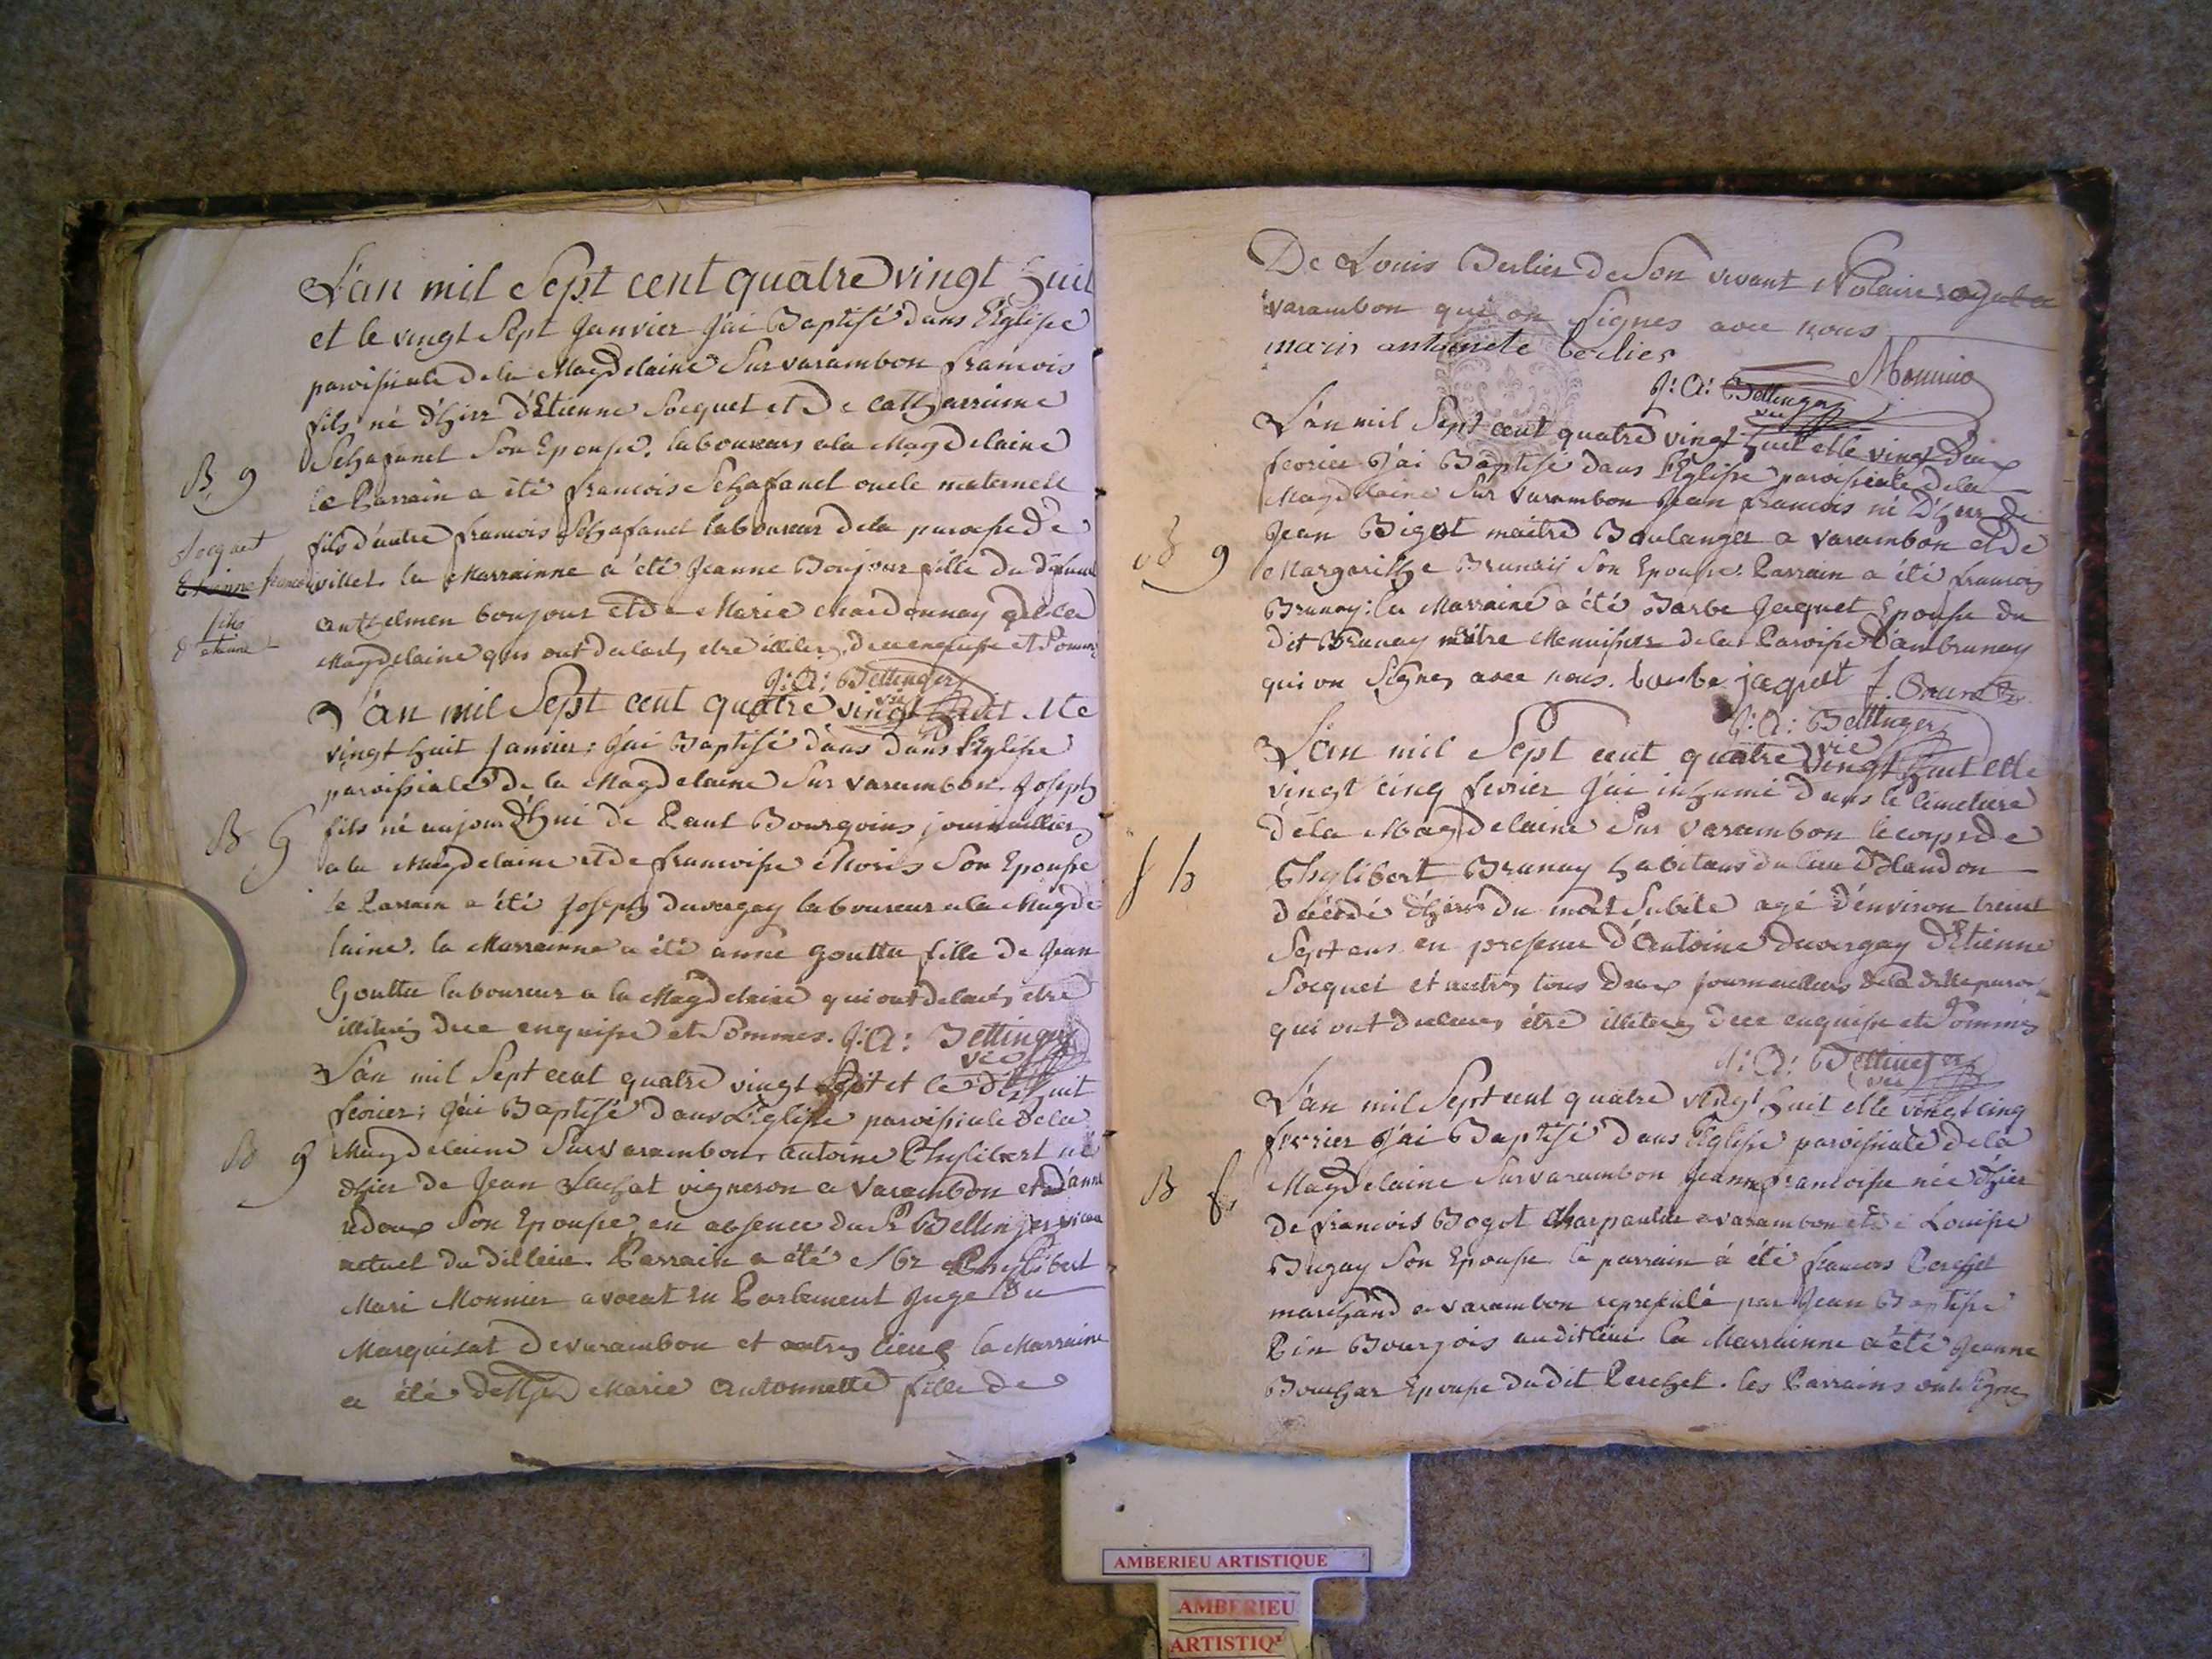 L'an mil Sept cent quatre vingt huit
et le vingt Sept Janvier J'ai Baptisé dans l'Eglise
paroissiale dela Magdelaine Sur varambon francois
fils né d'hier d'Etienne Socquet et De Catherinne
Schafanel Son Epouse, laboureurs ala Magdelaine
le Parrain a été francois Schafanel oncle maternele
fils d'autre francois Schafanel laboureur dela paroisse de
villet. la Marrainne a été Jeanne Boujour fille du defunt
antelmen boujour et de Marie Chardonnay dela
Magdelaine qui ont declarés etre illiterés, de ce enquise et Sommés
J: A: Bettinger
vic
B g
Socquet
Etienne francois
fils
d'etienne
L'an mil Sept cent quatre vingt huit et le
vingt huit Janvier: J'ai Baptisé dans dans l'Eglise
paroissiale de la Magdelaine Sur varambon. Joseph
fils né aujourd'hui de Paul Bourgoins journaillier
a la Magdelaine et de francoise Moris Son Epouse
le Parrain a été Joseph duvergay laboureur ala Magde
laine. la Marrainne a été anne Gouttu fille de Jean
Gouttu laboureur a la Magdelaine qui ont declarés etre
illiterés de ce enquise et Sommes. J: A: Bettinger
vic
B G
L'an mil Sept cent quatre vingt huit et le dixhuit
fevrier: J'ai Baptisé dans L'Eglise paroissiale dela
Magdelaine Sur varambon, antoine Phylibert né
d'hier de Jean Luchat vigneron a Varambon et d'anne
redoux Son Epouse, en absence du Sr Bettinger vicaire
actuel du dit lieu. Parrain a été Phylibert
Mari Monnier avocat en Parlement Juge du
Marquisat de varambon et autres lieux la Marraine
a été Marie Antonnette fille de
B g
De Louis Berlier de Son vivant Notaire royal a
varambon qui on Signés avec nous
marie antoinete berlier
Monnier
J: A: Bettinger
vic
L'an mil Sept cent quatre vingt huit et le vingt deux
fevrier J'ai Baptisé dans l'Eglise paroissiale dela
Magdelaine Sur varambon Jean francois né d'hier de
Jean Bigot maitre Boulanger a varambon et de
Margarithe Brunay Son Epouse. Parrain a été francois
Brunay: la Marraine a été Barbe Jaquet Epouse du
dit Brunay maitre Menuisier dela Paroisse d'ambrunay
qui on Signés avec nous. barbe jaquet f. Brunet
J: A: Bettinger
vic
B g
L'an mil Sept cent quatre vingt huit et le
vingt cinq fevrier J'ai inhumé dans le Cimetiere
dela Magdelaine Sur varambon le corps de
Phylibert Brunay habitans du lieu d'Handon
décédé d'hier du mort Subite agé d'environ trente
Sept ans en presence d'Antoine duvergay d'Etienne
Socquet et autres tous deux Journailliers dela dite paroi-
qui ont declarés être illiterés de ce enquise et Sommés
J: A: Bettinger
vic
f h
L'an mil Sept cent quatre vingt huit et le vingt cinq
fevrier J'ai Baptisé dans l'Eglise paroissiale dela
Magdelaine Sur varambon Jeanne francoise née d'hier
de francois Bogot Charpantier a varambon et de Louise
Bugay Son Epouse le parrain à été francois Perchet
marchand a varambon represeté par Jean Baptise
Pin Bourgois audit lieu. la Marrainne a été Jeanne
Bouchar Epouse dudit Perchet. les Parrains ont Signé
B f
AMBERIEU ARTISTIQUE
AMBERIEU
ARTISTIQ